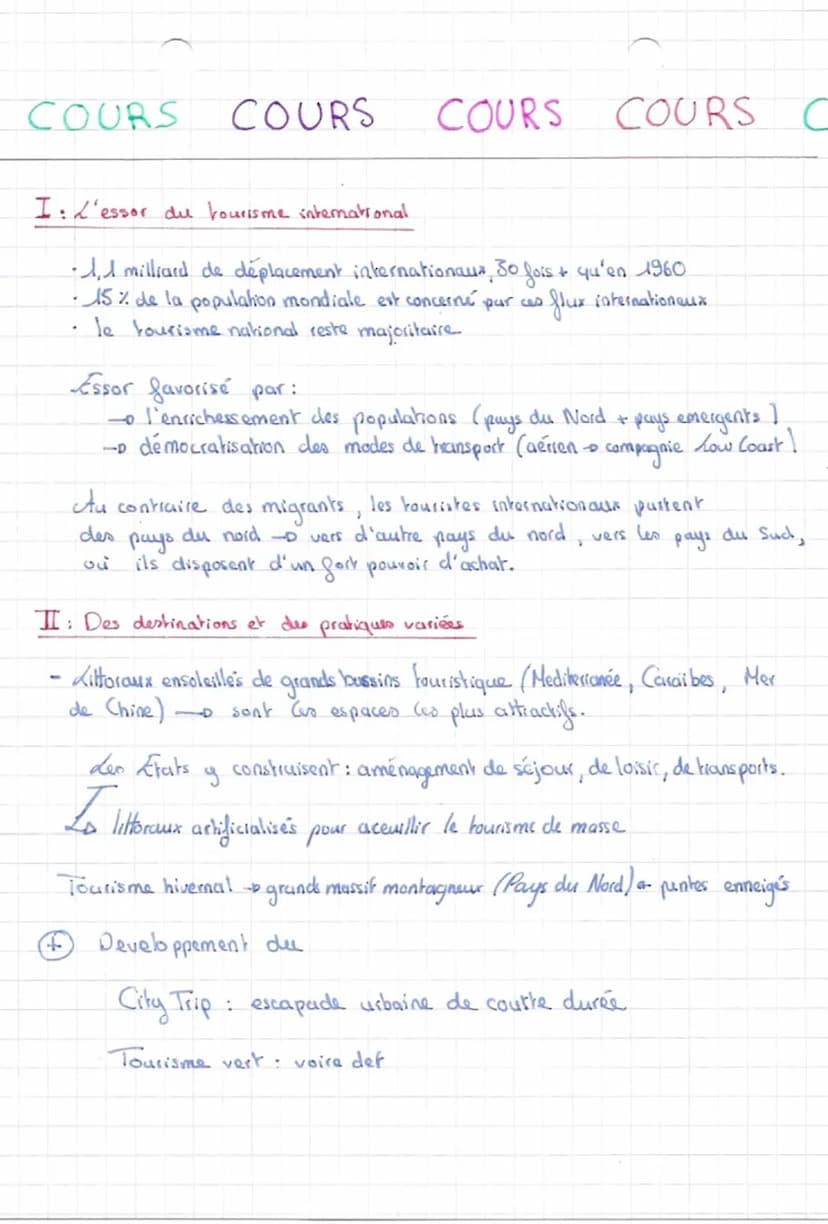 COURS COURS COURS COURS C
I : L'essor du tourisme international
· 1,1 milliard de déplacement internationaux, 30 fois + qu'en 1960
· 15 % de la population mondiale est concerné par ces flux internationaux
· le tourisme national reste majoritaire
Essor favorisé par :
→ l'enrichessement des populations (pays du Nord + pays emergents)
→ démocratisation des modes de transport (aérien → compagnie Low Coast)
Au contraire des migrants, les touristes internationaux partent
des pays du nord → vers d'autre pays du nord, vers les pays du Sud,
où ils disposent d'un fort pouvoir d'achat.
II : Des destinations et des pratiques variées
- Littoraux ensoleillés de grands bassins touristique (Mediterranée, Caraibes, Mer
de Chine) → sont les espaces les plus attractifs.
Les États y construisent : aménagement de séjour, de loisir, de transports.
↳ littoraux artificialisés pour aceuillir le tourisme de masse
Tourisme hivernal → grands massif montagneux (Pays du Nord) ← pentes enneigés
+ Developpement du
City Trip : escapade urbaine de courte durée
Tourisme vert : voire def